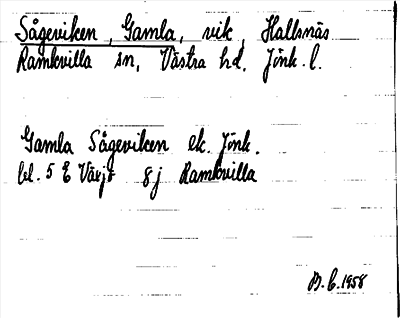 Sågeviken, Gamla, vik, Hallsnäs
Ramkvilla sn, Västra hd. Jönk. l.
Gamla Sågeviken ek. Jönk.
bl. 5 E Växjö 8j Ramkvilla
B. b. 1958